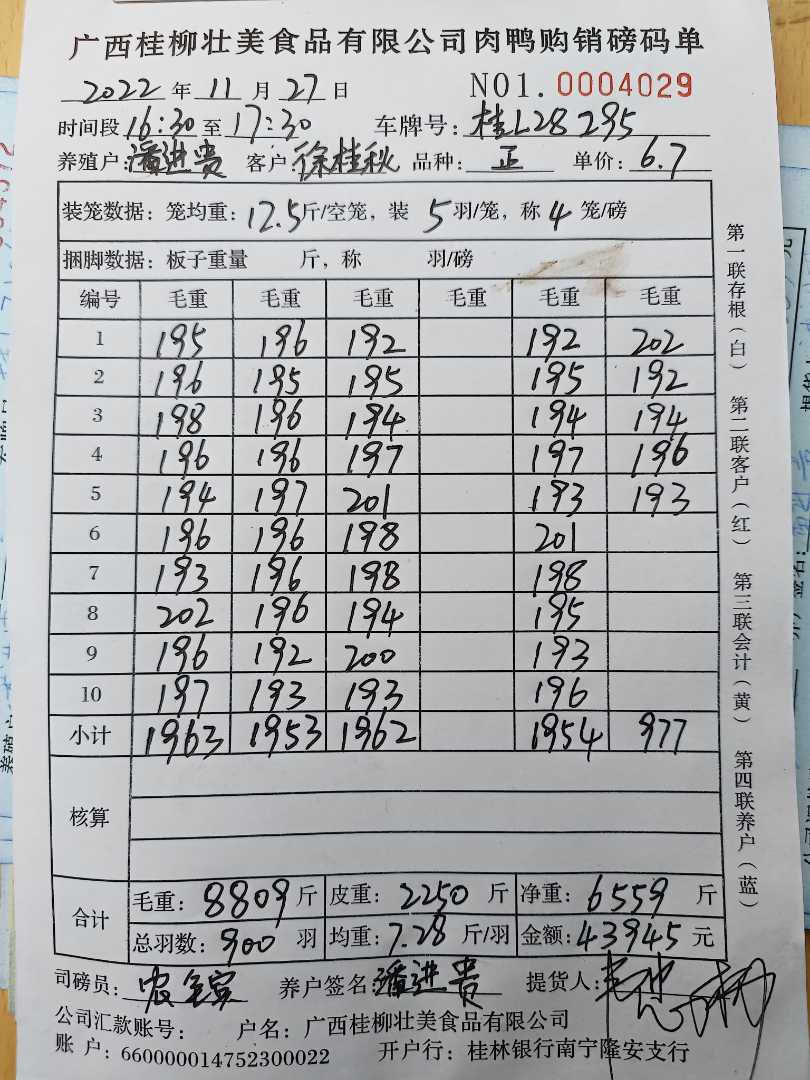 广西桂柳壮美食品有限公司肉鸭购销磅码单
2022 年 11 月 27 日 NO1. 0004029
时间段 16:30 至 17:30 车牌号: 桂L28295
养殖户: 潘进贵 客户: 徐桂秋 品种: 正 单价: 6.7
装笼数据: 笼均重: 12.5 斤/空笼, 装 5 羽/笼, 称 4 笼/磅
捆脚数据: 板子重量 斤, 称 羽/磅
编号 毛重 毛重 毛重 毛重 毛重 毛重
1 195 196 192 192 202
2 196 195 195 195 192
3 198 196 194 194 194
4 196 196 197 197 196
5 194 197 201 193 193
6 196 196 198 201
7 193 196 198 198
8 202 196 194 195
9 196 192 200 193
10 197 193 193 196
小计 1963 1953 1962 1954 977
核算
合计 毛重: 8809 斤 皮重: 2250 斤 净重: 6559 斤
总羽数: 900 羽 均重: 7.28 斤/羽 金额: 43945 元
司磅员: 养户签名: 潘进贵 提货人:
公司汇款账号: 户名: 广西桂柳壮美食品有限公司
账 户: 660000014752300022 开户行: 桂林银行南宁隆安支行
第一联存根(白) 第二联客户(红) 第三联会计(黄) 第四联养户(蓝)